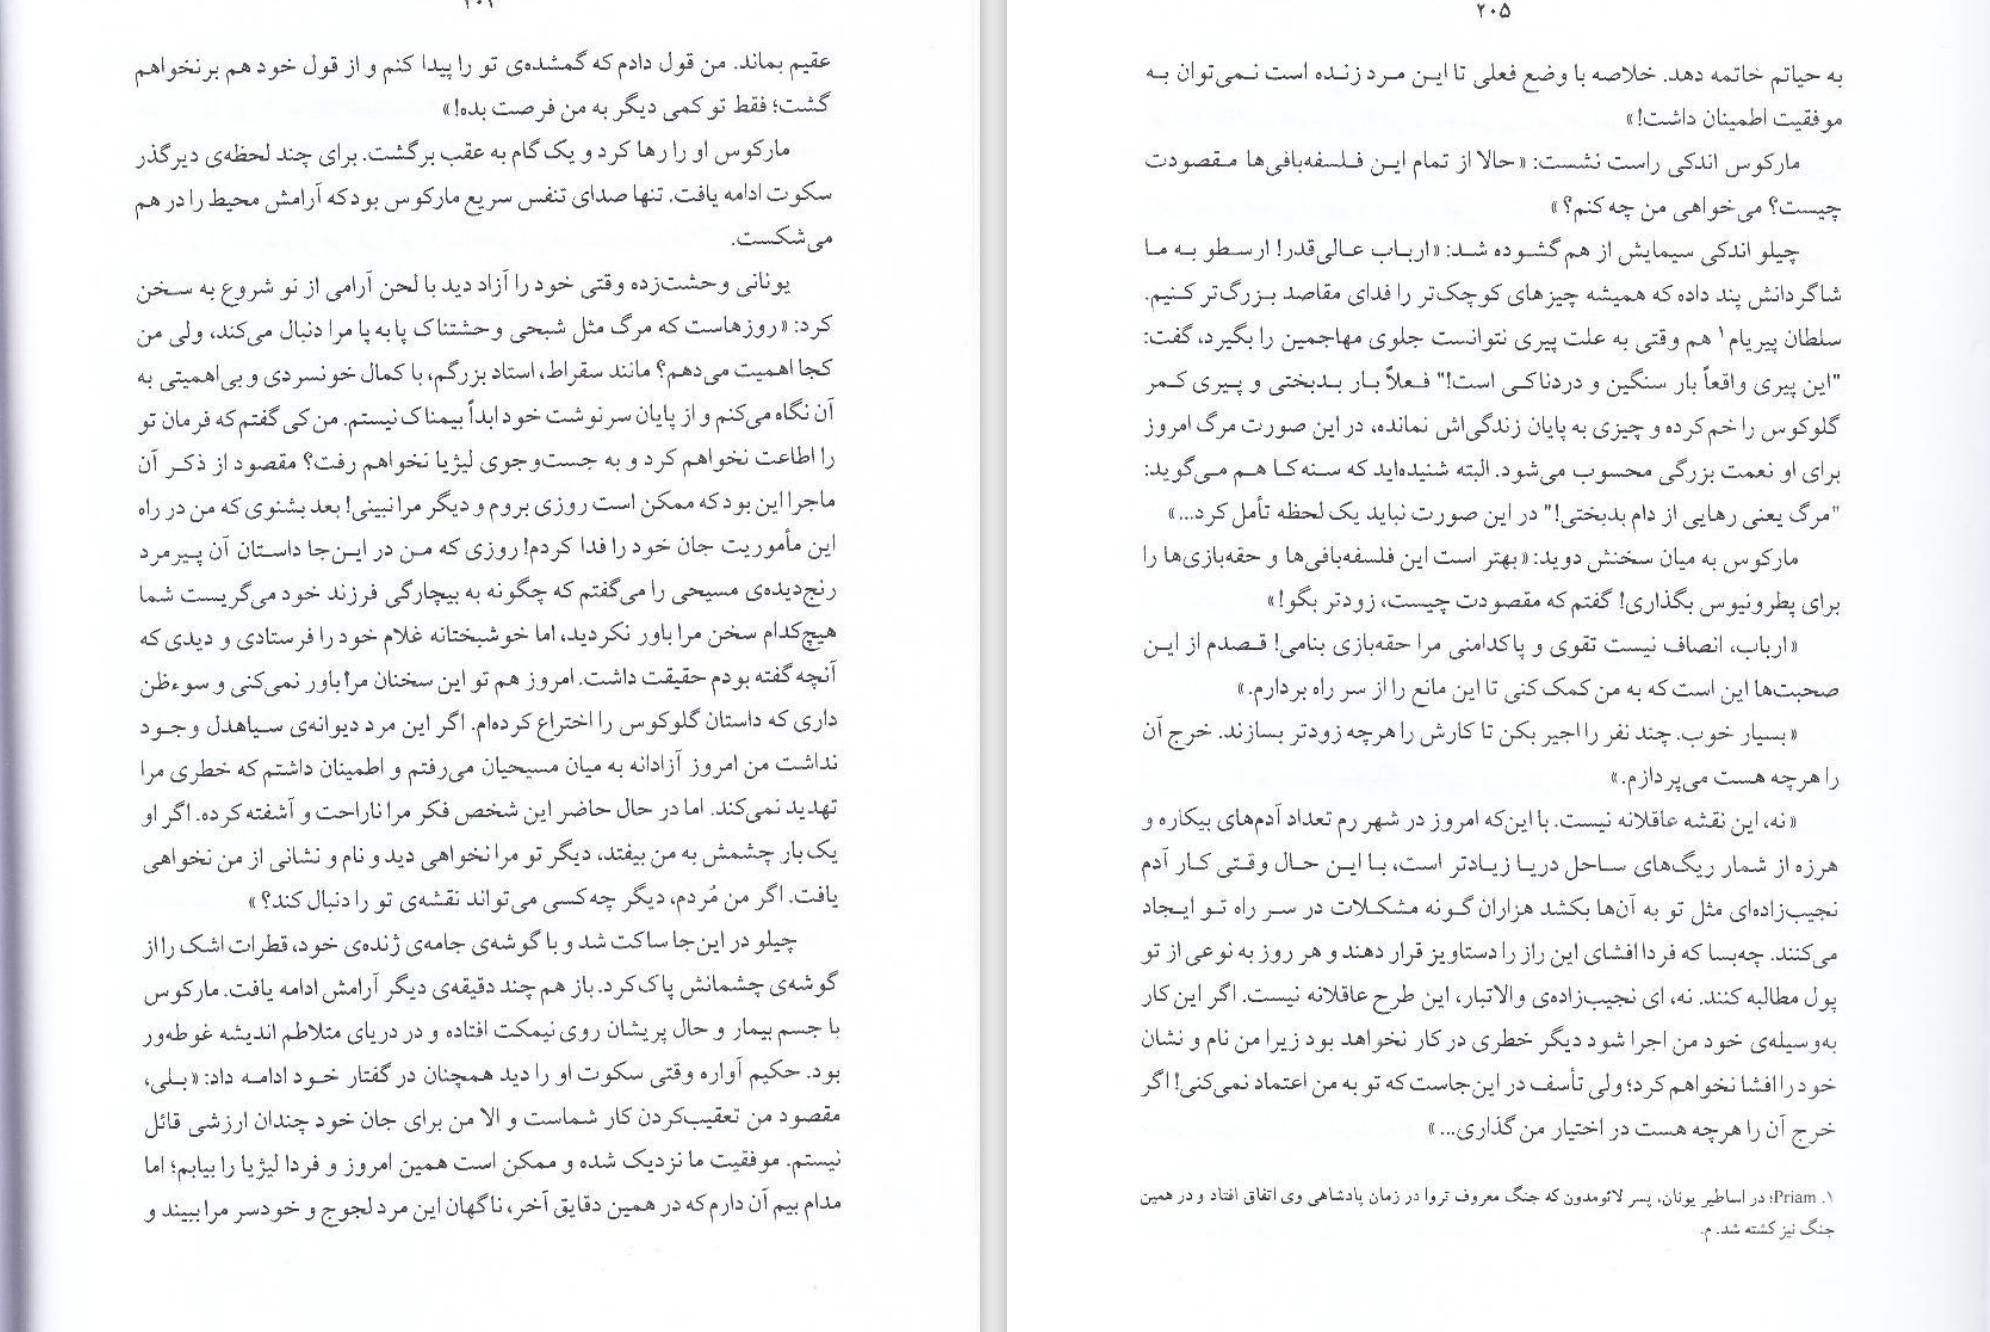 عقیم بماند. من قول دادم که گمشده‌ی تو را پیدا کنم و از قول خود هم برنخواهم
گشت؛ فقط تو کمی دیگر به من فرصت بده!»
مارکوس او را رها کرد و یک گام به عقب برگشت. برای چند لحظه‌ی دیرگذر
سکوت ادامه یافت. تنها صدای تنفس سریع مارکوس بود که آرامش محیط را در هم
می‌شکست.
یونانی وحشت‌زده وقتی خود را آزاد دید با لحن آرامی از نو شروع به سخن
کرد: «روزهاست که مرگ مثل شبحی وحشتناک پا به پا مرا دنبال می‌کند، ولی من
کجا اهمیت می‌دهم؟ مانند سقراط، استاد بزرگم، با کمال خونسردی و بی‌اهمیتی به
آن نگاه می‌کنم و از پایان سرنوشت خود ابداً بیمناک نیستم. من کی گفتم که فرمان تو
را اطاعت نخواهم کرد و به جست‌وجوی لیژیا نخواهم رفت؟ مقصود از ذکر آن
ماجرا این بود که ممکن است روزی بروم و دیگر مرا نبینی! بعد بشنوی که من در راه
این مأموریت جان خود را فدا کردم! روزی که من در این‌جا داستان آن پیرمرد
رنج‌دیده‌ی مسیحی را می‌گفتم که چگونه به بیچارگی فرزند خود می‌گریست شما
هیچ‌کدام سخن مرا باور نکردید، اما خوشبختانه غلام خود را فرستادی و دیدی که
آنچه گفته بودم حقیقت داشت. امروز هم تو این سخنان مرا باور نمی‌کنی و سوءظن
داری که داستان گلوکوس را اختراع کرده‌ام. اگر این مرد دیوانه‌ی سیاهدل وجود
نداشت من امروز آزادانه به میان مسیحیان می‌رفتم و اطمینان داشتم که خطری مرا
تهدید نمی‌کند. اما در حال حاضر این شخص فکر مرا ناراحت و آشفته کرده. اگر او
یک بار چشمش به من بیفتد، دیگر تو مرا نخواهی دید و نام و نشانی از من نخواهی
یافت. اگر من مُردم، دیگر چه کسی می‌تواند نقشه‌ی تو را دنبال کند؟»
چیلو در این‌جا ساکت شد و با گوشه‌ی جامه‌ی ژنده‌ی خود، قطرات اشک را از
گوشه‌ی چشمانش پاک کرد. باز هم چند دقیقه‌ی دیگر آرامش ادامه یافت. مارکوس
با جسم بیمار و حال پریشان روی نیمکت افتاده و در دریای متلاطم اندیشه غوطه‌ور
بود. حکیم آواره وقتی سکوت او را دید همچنان در گفتار خود ادامه داد: «بلی،
مقصود من تعقیب‌کردن کار شماست و الا من برای جان خود چندان ارزشی قائل
نیستم. موفقیت ما نزدیک شده و ممکن است همین امروز و فردا لیژیا را بیابم؛ اما
مدام بیم آن دارم که در همین دقایق آخر، ناگهان این مرد لجوج و خودسر مرا ببیند و
۲۰۵
به حیاتم خاتمه دهد. خلاصه با وضع فعلی تا این مرد زنده است نمی‌توان به
موفقیت اطمینان داشت!»
مارکوس اندکی راست نشست: «حالا از تمام این فلسفه‌بافی‌ها مقصودت
چیست؟ می‌خواهی من چه کنم؟»
چیلو اندکی سیمایش از هم گشوده شد: «ارباب عالی‌قدر! ارسطو به ما
شاگردانش پند داده که همیشه چیزهای کوچک‌تر را فدای مقاصد بزرگ‌تر کنیم.
سلطان پیریام۱ هم وقتی به علت پیری نتوانست جلوی مهاجمین را بگیرد، گفت:
"این پیری واقعاً بار سنگین و دردناکی است!" فعلاً بار بدبختی و پیری کمر
گلوکوس را خم کرده و چیزی به پایان زندگی‌اش نمانده، در این صورت مرگ امروز
برای او نعمت بزرگی محسوب می‌شود. البته شنیده‌اید که سنه‌کا هم می‌گوید:
"مرگ یعنی رهایی از دام بدبختی!" در این صورت نباید یک لحظه تأمل کرد...»
مارکوس به میان سخنش دوید: «بهتر است این فلسفه‌بافی‌ها و حقه‌بازی‌ها را
برای پطرونیوس بگذاری! گفتم که مقصودت چیست، زودتر بگو!»
«ارباب، انصاف نیست تقوی و پاکدامنی مرا حقه‌بازی بنامی! قصدم از این
صحبت‌ها این است که به من کمک کنی تا این مانع را از سر راه بردارم.»
«بسیار خوب. چند نفر را اجیر بکن تا کارش را هرچه زودتر بسازند. خرج آن
را هرچه هست می‌پردازم.»
«نه، این نقشه عاقلانه نیست. با این‌که امروز در شهر رم تعداد آدم‌های بیکاره و
هرزه از شمار ریگ‌های ساحل دریا زیادتر است، با این حال وقتی کار آدم
نجیب‌زاده‌ای مثل تو به آن‌ها بکشد هزاران گونه مشکلات در سر راه تو ایجاد
می‌کنند. چه‌بسا که فردا افشای این راز را دستاویز قرار دهند و هر روز به نوعی از تو
پول مطالبه کنند. نه، ای نجیب‌زاده‌ی والاتبار، این طرح عاقلانه نیست. اگر این کار
به‌وسیله‌ی خود من اجرا شود دیگر خطری در کار نخواهد بود زیرا من نام و نشان
خود را افشا نخواهم کرد؛ ولی تأسف در این‌جاست که تو به من اعتماد نمی‌کنی! اگر
خرج آن را هرچه هست در اختیار من گذاری...»
۱. Priam؛ در اساطیر یونان، پسر لائومدون که جنگ معروف تروا در زمان پادشاهی وی اتفاق افتاد و در همین
جنگ نیز کشته شد. م.